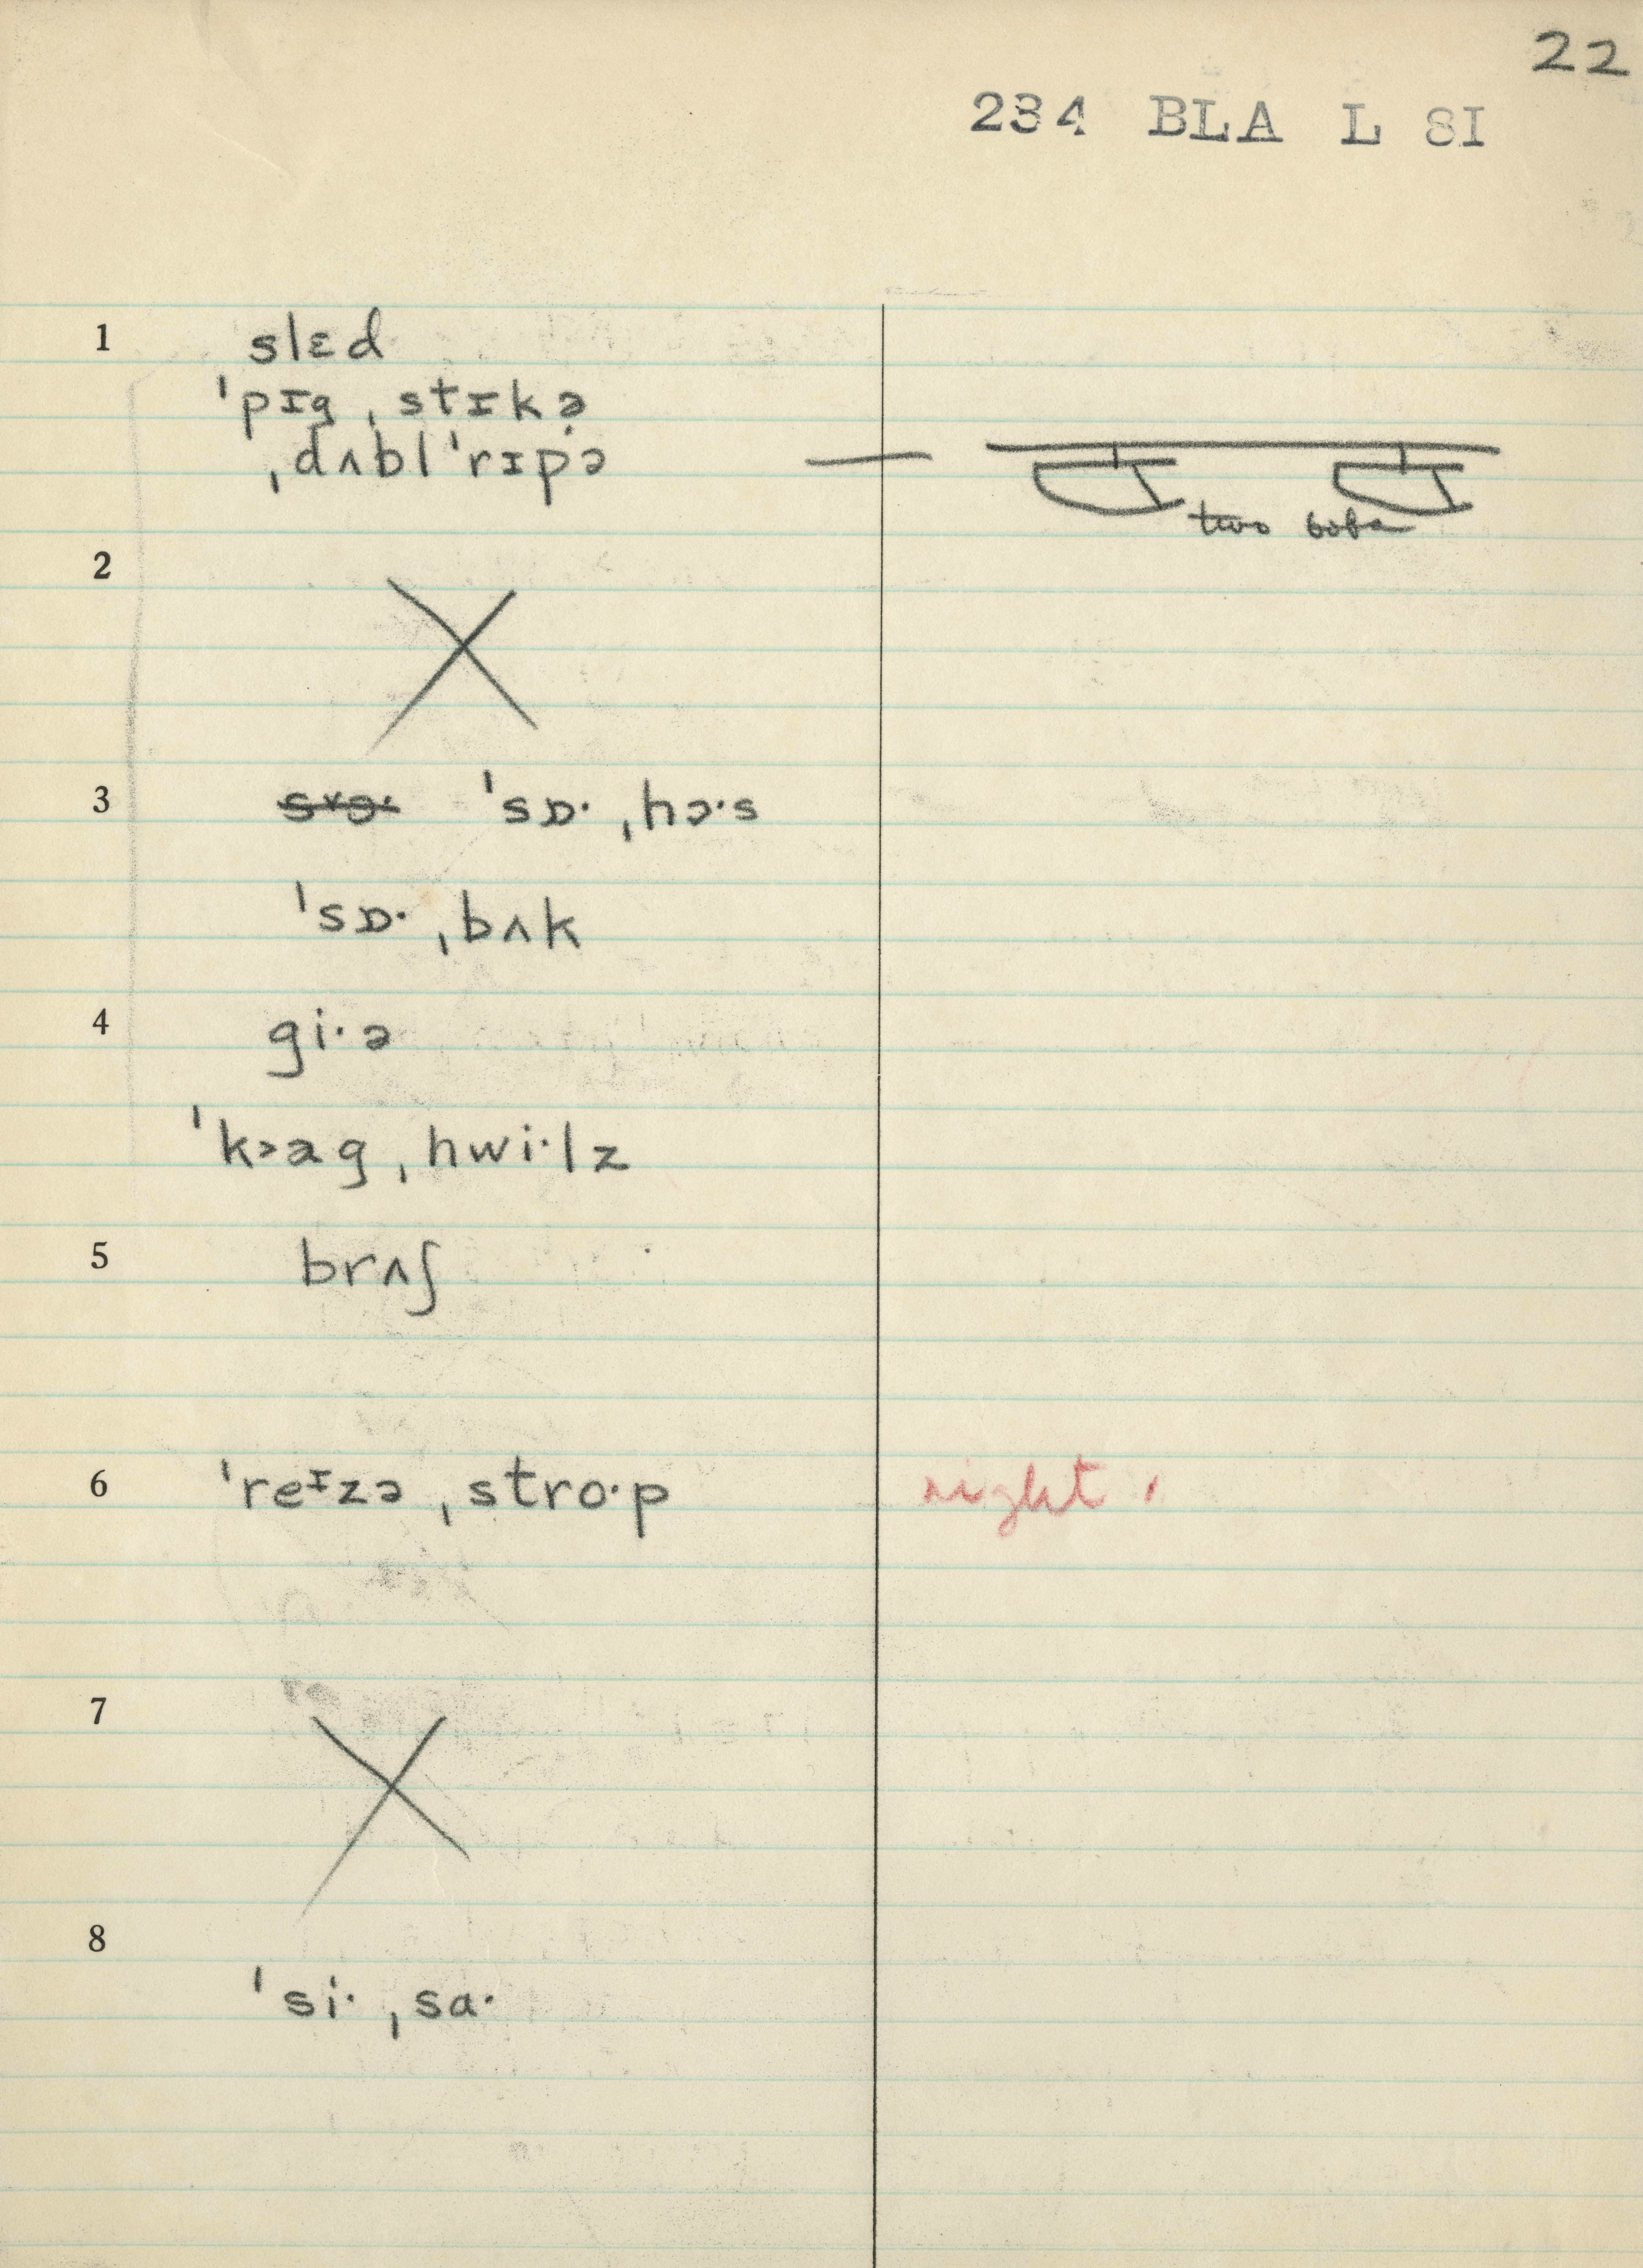 22
234 BLA L SI
1 slɛd
ˈpɪg ˌstɪkə
ˌdʌblˈrɪpə —
two bobs
2
3 ˈsɒ· ˌhɔ·s
ˈsɒ· ˌbʌk
4 gi·ə
ˈk˃ag ˌhwi·lz
5 brʌʃ
6 ˈreᶦzə ˌstro·p right
7
8 ˈsi· ˌsa·